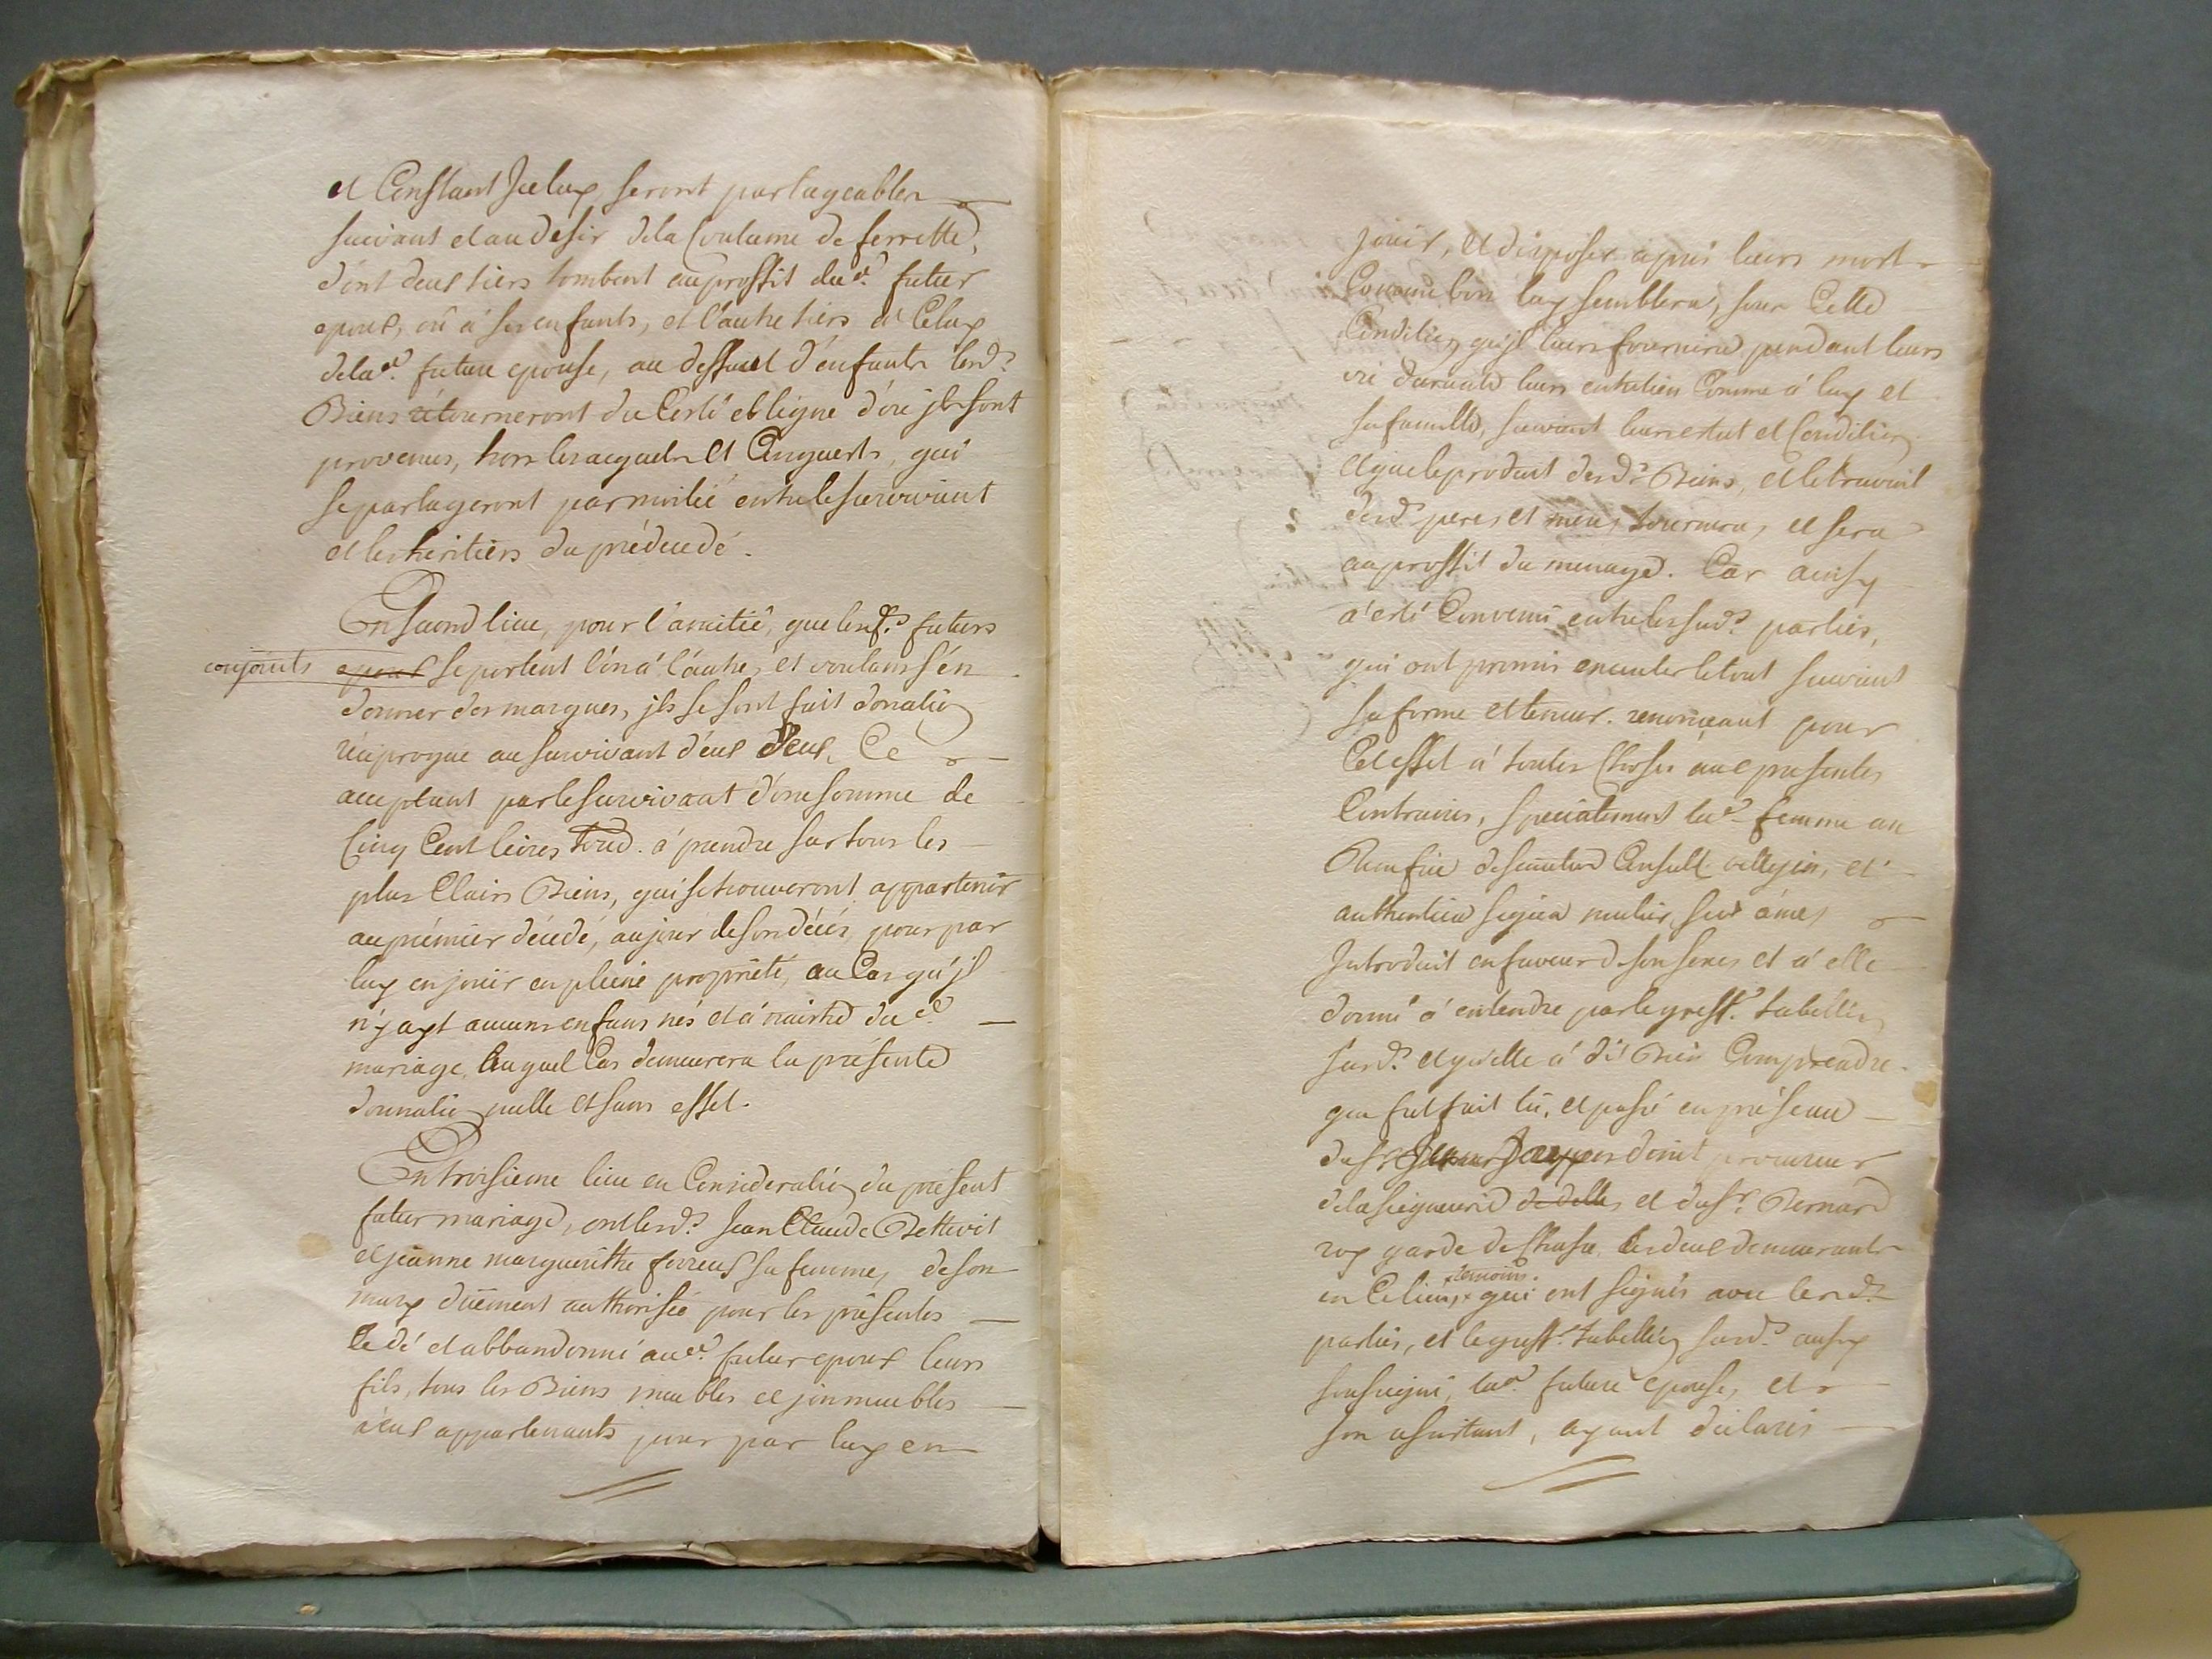 et Constant Jceluy seront partageables
suivant et au desir dela Coutume de ferrette,
dont deux tiers tombent au proffit dud. futur
epoux, ou a ses enfants, et l'autre tiers a Celuy
delad. future epouse, au deffaut d'enfants lesd.
Biens rétourneront du Costé et ligne d'ou jls sont
provenus, hors les acquets et Conquests, qui
se partageront par moitié entre le survivant
et les héritiers du prédécédé.
En second lieu, pour l'amitié, que lesd. futurs
conjoints epoux se portent l'un a l'autre, et voulans s'en
donner des marques, jls se sont fait donation
réciproque au survivant d'eux deux, Ce
acceptant par le survivant d'une somme de
Cinq Cent livres tourd. a prendre sur tous les
plus Clairs Biens, qui se trouveront appartenir
au prémier décédé, au jour de son décés, pour par
luy en jouir en pleine proprieté, au Cas qu'jl
n'y ayt aucuns enfans nés et a naistre dud.
mariage, auquel Cas demeurera la présente
donnation nulle et sans effet.
En troisieme lieu en Consideration du présent
futur mariage, ont lesd. Jean Claude Bettevit
et jeanne margueritte ferreux sa femme, de son
mary düement authorisée pour les présentes
Cedé et abbandonné aud. futur epoux leurs
fils, tous les Biens meubles et jmmeubles
a eux appartenants pour par luy en
jouir, et disposer aprés leurs mort
Comme bon luy semblera, sous Cette
Condition qu'jl leurs fournira pendant leurs
vie durante leurs entretien Comme a luy et
sa famille, suivant leurs estat et Condition
et que le produit desd. Biens, et le travail
desd. peres et meres tournera, et sera
au proffit du menage. Car ainsy
a esté Convenu entre les sud. parties,
qui ont promis executer le tout suivant
sa forme et teneur. renonceant pour
Cet effet a toutes Choses aux presentes
Contraires, specialement lad. femme au
Benefice de senatus Consult velleyin, et
authentica siqua mulier, sur ame,
Jntroduit en faveur de son sexe et a elle
donné a entendre par le greff. tabellion
susd. et qu'elle a dit Bien Comprendre.
que fut fait lû, et passé en présence
du Sr. Doinit procureur
dela seigneurie de delle, et du Sr. Bernard
roy garde de Chasse, les deux demeurants
en Ce lieu, temoins. qui ont signés avec lesd.
parties, et le greff. tabellion susd. aussy
soussigné, lad. future epouse, et
son assistant, ayant déclarés